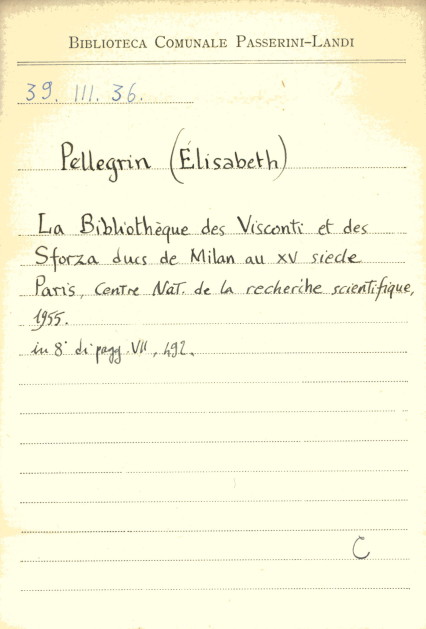 BIBLIOTECA COMUNALE PASSERINI-LANDI
39. III. 36.
Pellegrin (Élisabeth)
La Bibliothèque des Visconti et des
Sforza ducs de Milan au XV siecle
Paris, Centre Nat. de la recherche scientifique,
1955.
in 8° di pagg. VII, 492.
C